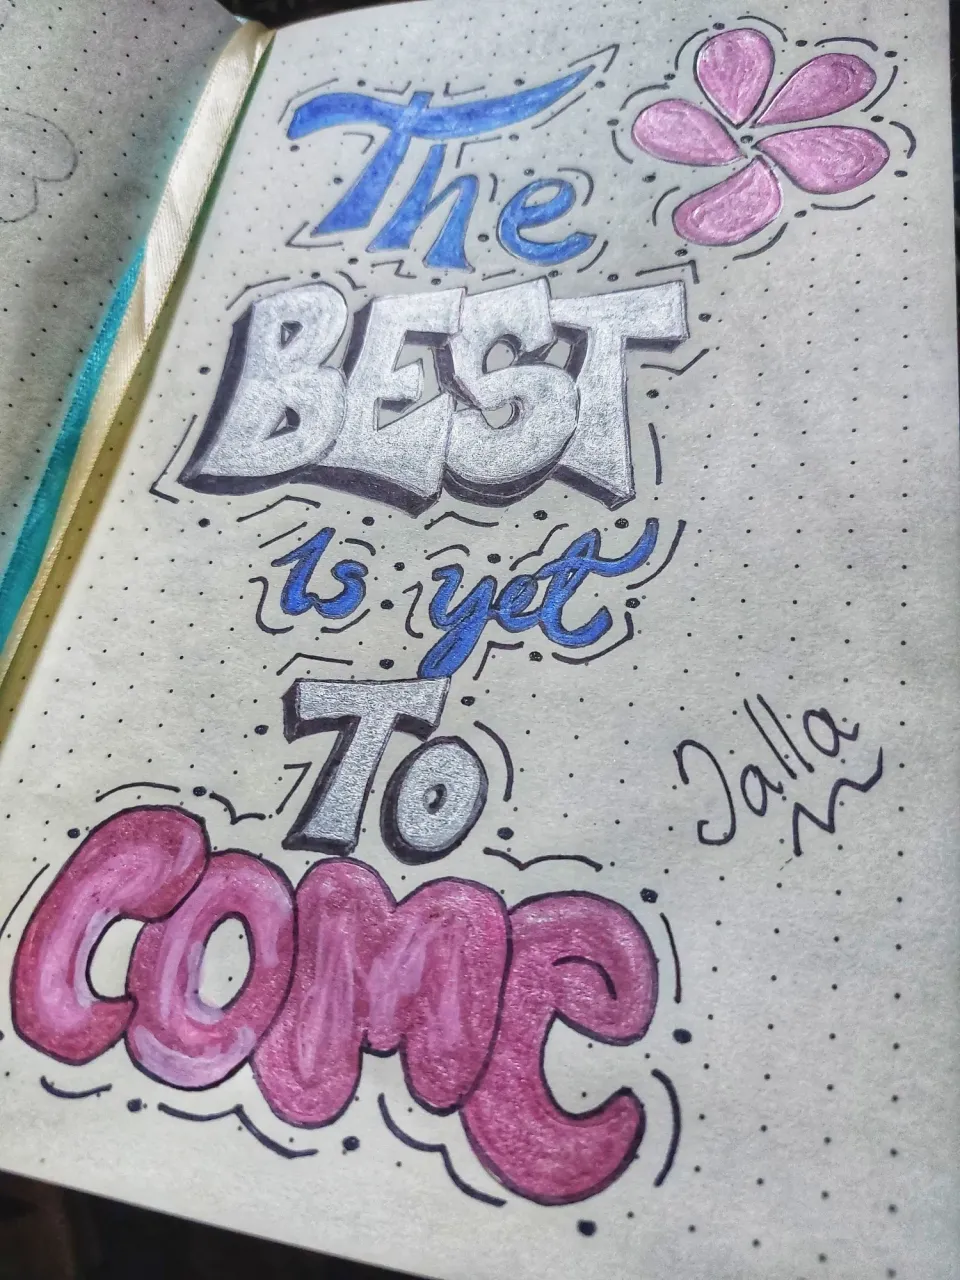 The
BEST
is yet
To
Come
Jalla